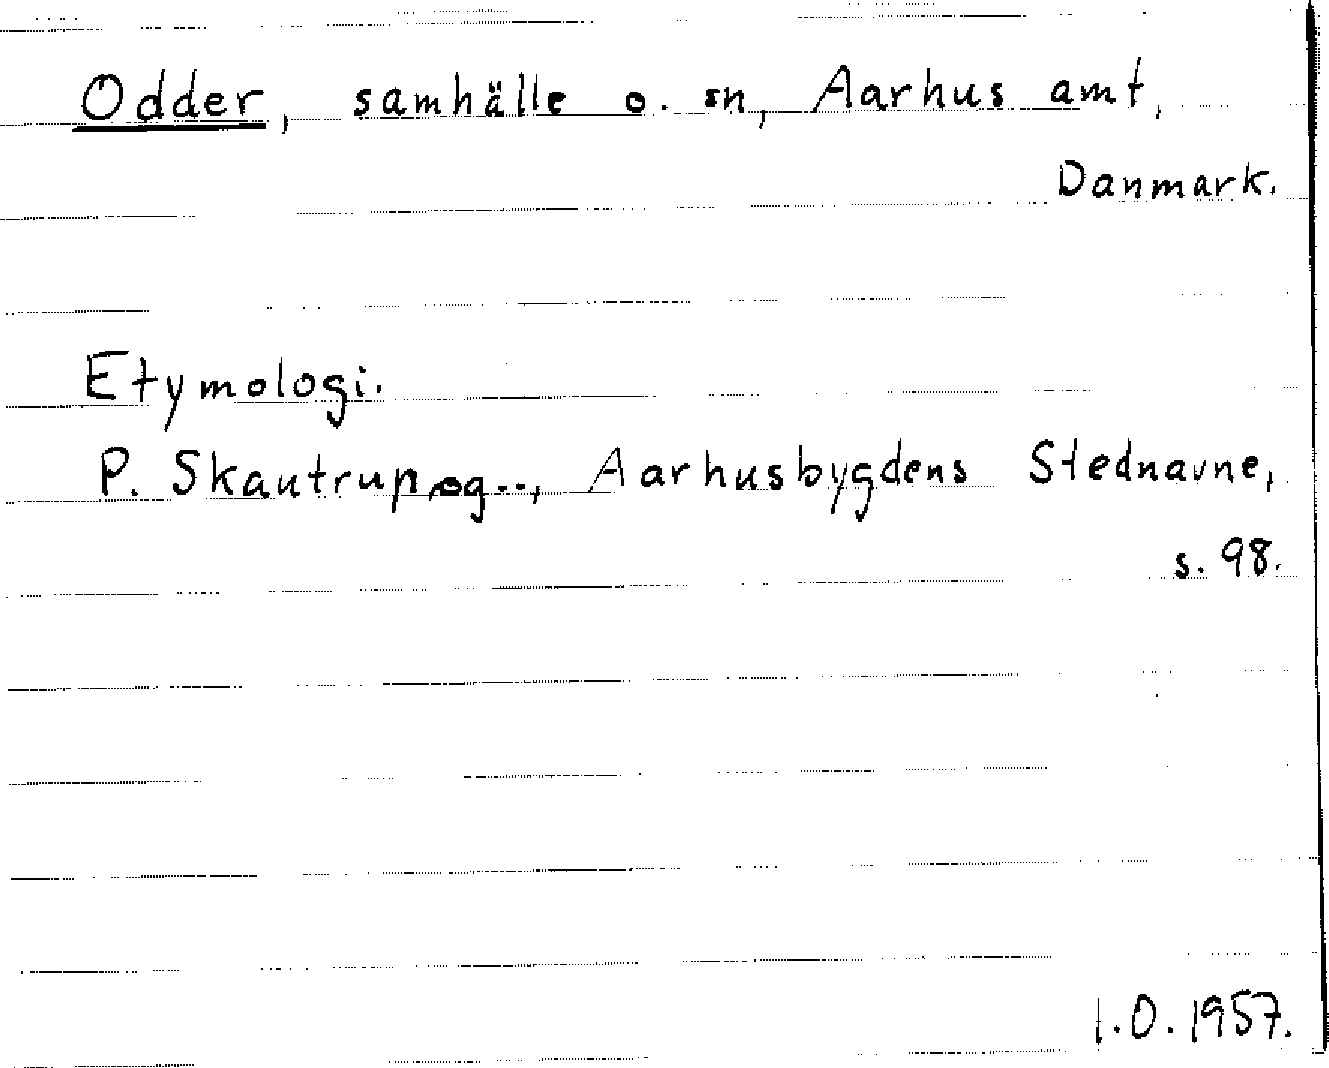 Odder, samhälle o. sn, Aarhus amt,
Danmark.
Etymologi.
P. Skautrup og.., Aarhusbygdens Stednavne,
s. 98.
1.0.1957.